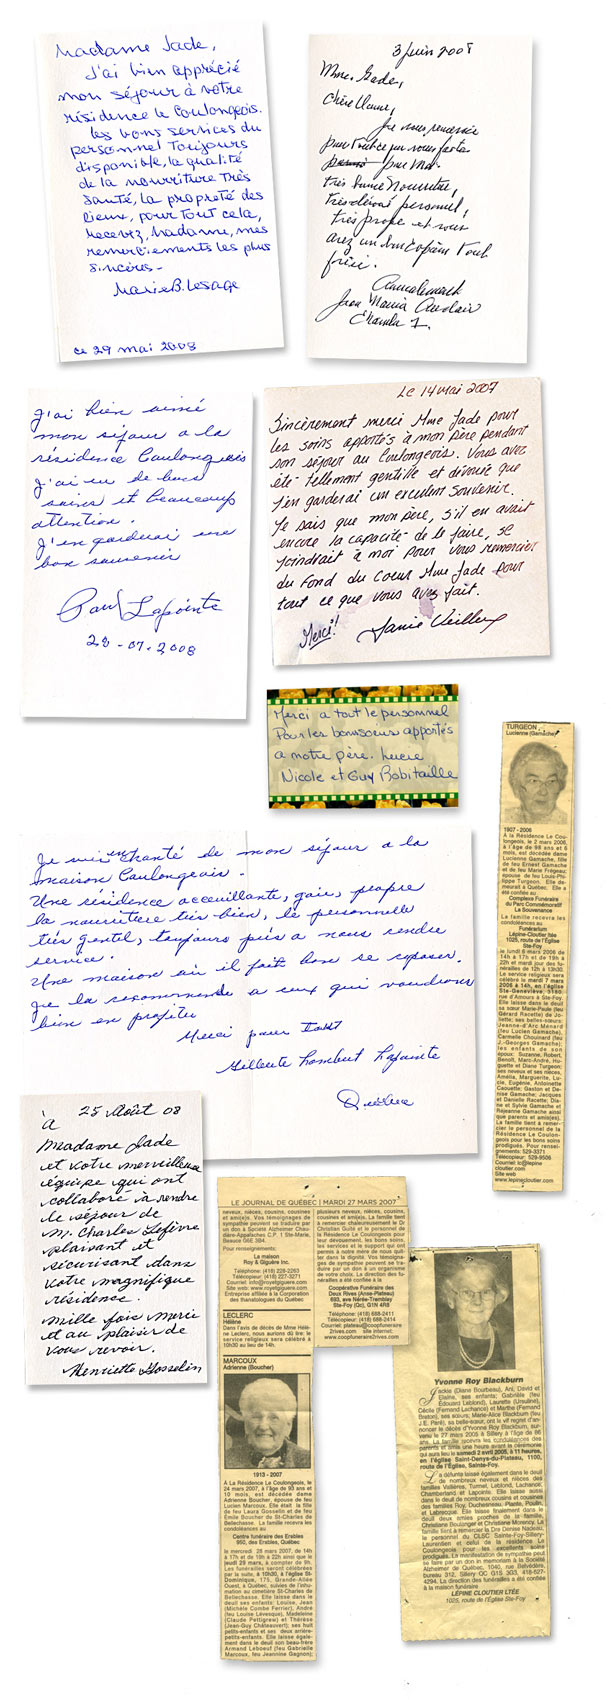 Madame Jade,
J'ai bien apprécié
mon séjour à votre
résidence le Coulongeois.
Les bons services du
personnel toujours
disponible, la qualité
de la nourriture très
santé, la propreté des
lieux, pour tout cela,
recevez, Madame, mes
remerciements les plus
sincères -
Marie B. Lesage
ce 29 mai 2008
3 juin 2008
Mme. Jade,
Chère Dame,
Je vous remercie
pour tout ce que vous faite
pour moi
très bonne nourriture,
très dévoué personnel,
très propre et vous
avez un bon copain tout
Jean Maria Audclair
Chambre 1.
J'ai bien aimé
mon séjour a la
résidence Coulongeois
j'ai eu de bons
soins et beaucoup
attention.
J'en garderai un
bon souvenir
Paul Lapointe
28-07-2008
Le 14 mai 2007
Sincèrement merci Mme Jade pour
les soins apportés à mon père pendant
son séjour au Coulongeois. Vous avez
été tellement gentille et dévouée que
j'en garderai un excellent souvenir.
Je sais que mon père, s'il en avait
encore la capacité de le faire, se
joindrait à moi pour vous remercier
du fond du coeur Mme Jade pour
tout ce que vous avez fait.
Merci!
Merci a tout le personnel
Pour les bons soins apportés
a notre père. Lucie
Nicole et Guy Robitaille
TURGEON
Lucienne (Gamache)
1907 - 2006
À la Résidence Le Cou-
longeois, le 2 mars 2006,
à l'âge de 98 ans et 6
mois, est décédée dame
Lucienne Gamache, fille
de feu Ernest Gamache
et de feu Marie Frégeau,
épouse de feu Louis-Phi-
lippe Turgeon. Elle de-
meurait à Québec. Elle a
été confiée au
Complexe Funéraire
du Parc Commémoratif
La Souvenance
La famille recevra les
condoléances au
Funérarium
Lépine-Cloutier ltée
1025, route de l'Église
Ste-Foy
le lundi 6 mars 2006 de
14h à 17h et de 19h à
22h et mardi jour des fu-
nérailles de 12h à 13h30.
Le service religieux sera
célébré le mardi 7 mars
2006 à 14h, en l'église
Ste-Geneviève, 3180,
rue d'Amours à Ste-Foy.
Elle laisse dans le deuil
sa soeur Marie-Paule (feu
Gérard Racette) de Jo-
liette; ses belles-soeurs:
Jeanne-d'Arc Ménard
(feu Lucien Gamache),
Carmelle Chouinard (feu
J.-Georges Gamache);
les enfants de son
époux: Suzanne, Robert,
Benoît, Marc-André, Hu-
guette et Diane Turgeon;
ses neveux et ses nièces,
Amélia, Marguerite, Lu-
cie, Eugénie, Antoinette
Caouette; Gaston et De-
nise Gamache, Jacques
et Danielle Racette; Dia-
ne et Sylvie Gamache et
Réjeanne Gamache ainsi
que parents et ami(e)s.
La famille tient à remer-
cier le personnel de la
Résidence Le Coulon-
geois pour les bons soins
prodigués. Pour rensei-
gnements: 529-3371
Télécopieur: 529-9506
Courriel: lc@lepine
cloutier.com
Site web
www.lepinecloutier.com
Je suis enchanté de mon séjour a la
maison Coulongeais.
Une résidence acceuillante, gaie, propre
la nourritiere très bien, le personnelle
très gentel, toujours près a nous rendre
service.
Une maison où il fait bon se reposer.
Je la recommende a ceux qui voudrons
bien en profiter
Merci pour tout
Québec
25 Août 08
À
Madame Jade
et votre merveilleuse
équipe qui ont
collaboré à rendre
le séjour de
M. Charles Lefèvre
plaisant et
sécurisant dans
votre magnifique
résidence.
Mille fois merci
et au plaisir de
vous revoir.
Henriette Gosselin
LE JOURNAL DE QUÉBEC | MARDI 27 MARS 2007
neveux, nièces, cousins, cousines
et ami(e)s. Vos témoignages de
sympathie peuvent se traduire
par un don à Société Alzheimer Chau-
dière-Appalaches C.P. 1 Ste-Marie,
Beauce G6E 3B4.
Pour renseignements:
La maison
Roy & Giguère Inc.
Téléphone: (418) 228-2263
Télécopieur: (418) 227-3271
Courriel info@roygiguere.com
Site web: www.roygiguere.com
Entreprise affiliée à la Corporation
des thanatologues du Québec
LECLERC
Hélène
Dans l'avis de décès de Mme Hélè-
ne Leclerc, nous aurions dû lire: le
service religieux sera célébré à
10h30 au lieu de 14h.
plusieurs neveux, nièces, cousins,
cousines et ami(e)s. La famille tient
à remercier chaleureusement le Dr
Christian Guité et le personnel de
la Résidence Le Coulongeois pour
leur dévouement, les bons soins,
les services et le support qui ont
permis à notre mère de nous quit-
ter dans la dignité. Vos témoigna-
ges de sympathie peuvent se tra-
duire par un don à un organisme
de votre choix. La direction des fu-
nérailles a été confiée à la
Coopérative Funéraire des
Deux Rives (Anse-Plateau)
693, ave Nérée-Tremblay
Ste-Foy (Qc), G1N 4R8
Téléphone: (418) 688-2411
Télécopieur: (418) 688-2414
Courriel: plateau@coopfuneraire
2rives.com site internet:
www.coopfuneraire2rives.com
MARCOUX
Adrienne (Boucher)
1913 - 2007
À La Résidence Le Coulongeois, le
24 mars 2007, à l'âge de 93 ans et
10 mois, est décédée dame
Adrienne Boucher, épouse de feu
Lucien Marcoux. Elle était la fille
de feu Laura Gosselin et de feu
Émile Boucher de St-Charles de
Bellechasse. La famille recevra les
condoléances au
Centre funéraire des Érables
950, des Érables, Québec
le mercredi 28 mars 2007, de 14h
à 17h et de 19h à 22h ainsi que le
jeudi 29 mars, à compter de 9h.
Les funérailles seront célébrées
par la suite, à 10h30, à l'église St-
Dominique, 175, Grande-Allée
Ouest, à Québec, suivies de l'inhu-
mation au cimetière St-Charles de
Bellechasse. Elle laisse dans le
deuil ses enfants: Louise, Jean
(Michèle Combe Ferrier), André
(feu Louise Lévesque), Madeleine
(Claude Pettigrew) et Thérèse
(Jean-Guy Châteauvert); ses huit
petits-enfants et ses deux arrière-
petits-enfants. Elle laisse égale-
ment dans le deuil son beau-frère
Armand Leboeuf (feu Gabrielle
Marcoux, feu Jeannine Gagnon);
Yvonne Roy Blackburn
Jackie (Diane Bourbeau), Ani, David et
Élaine, ses enfants; Gabrielle (feu
Édouard Leblond), Laurette (Ursuline),
Cécile (Fernand Lachance) et Marthe (Fernand
Boiton), ses sœurs; Marie-Alice Blackburn (feu
J.E. Paré), sa belle-sœur, ont le vif regret d'an-
noncer le décès d'Yvonne Roy Blackburn, sur-
venu le 27 mars 2005 à Sillery à l'âge de 86
ans. La famille recevra les condoléances des
parents et amis une heure avant la cérémonie
qui aura lieu le samedi 2 avril 2005, à 11 heures,
en l'église Saint-Denys-du-Plateau, 1100,
route de l'Église, Sainte-Foy.
La défunte laisse également dans le deuil
de nombreux neveux et nièces des
familles Vallières, Turmel, Leblond, Lachance,
Chamberland et Lapointe. Elle laisse aussi
dans le deuil de nombreux cousins et cousines
des familles Roy, Duchesneau, Plante, Poulin, et
Labrecque. Elle laisse également dans le
deuil deux amies proches de la famille,
Christiane Boulanger et Christiane Morency. La
famille tient à remercier la Dre Denise Nadeau,
le personnel du CLSC Sainte-Foy-Sillery-
Laurentien et celui de la résidence Le
Coulongeois pour les excellents soins
prodigués. La manifestation de sympathie peut
se faire par un don in memoriam à la Société
Alzheimer de Québec, 1040, rue Belvédère,
bureau 312, Sillery QC G1S 3G3, 418-527-
4294. La direction des funérailles a été confiée
à la maison funéraire
LÉPINE CLOUTIER LTÉE
1025, route de l'Église Ste-Foy